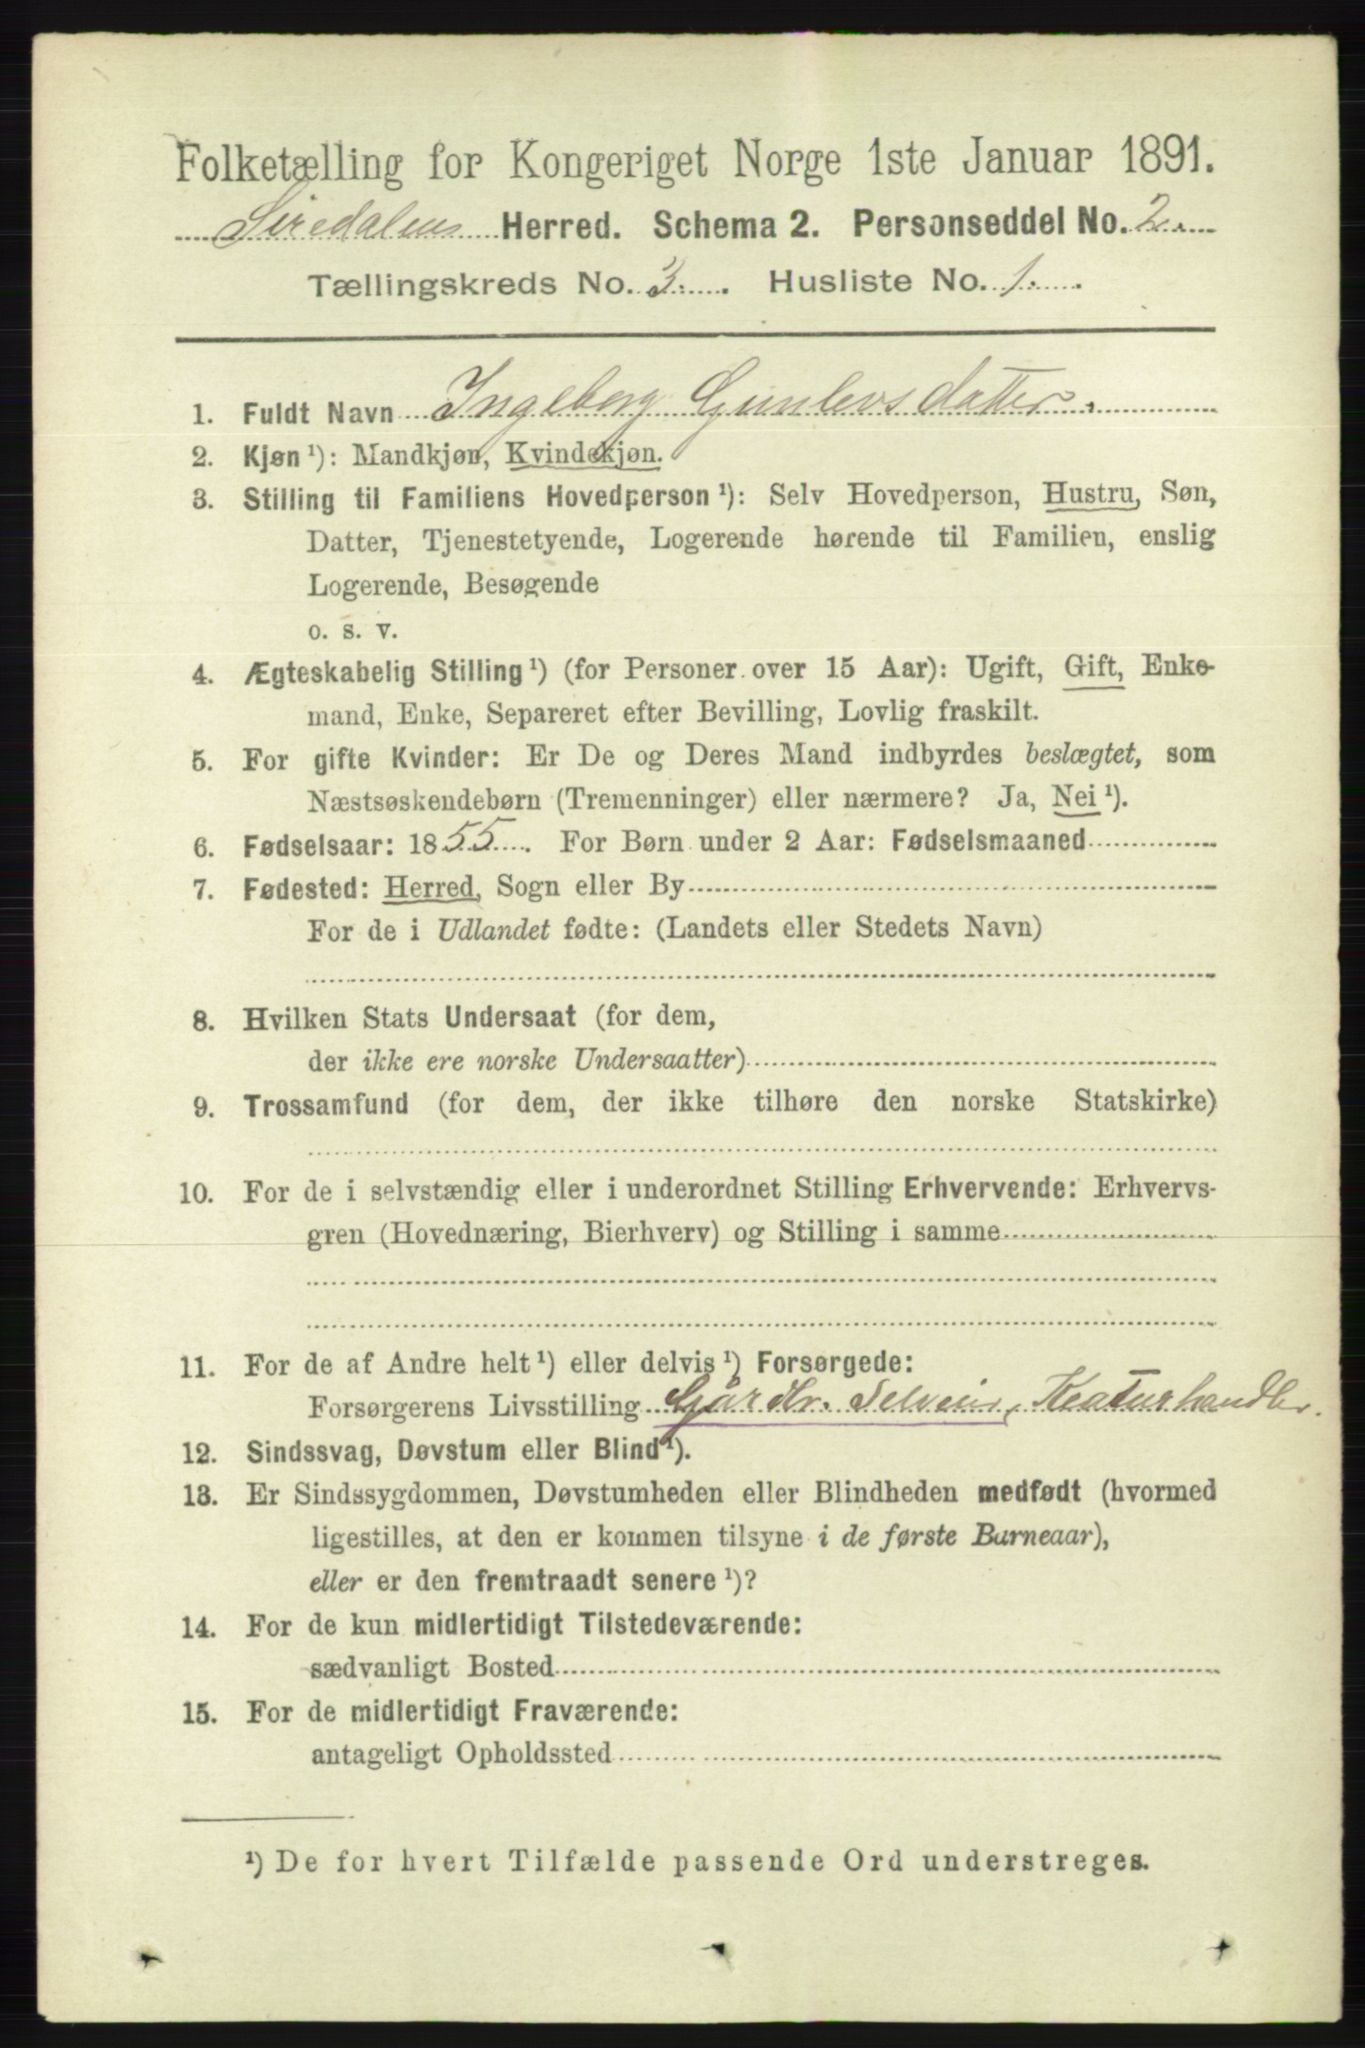 Folketælling for Kongeriget Norge 1ste Januar 1891.
Siredalens Herred. Schema 2. Personseddel No. 2.
Tællingskreds No. 3. Husliste No. 1.
1. Fuldt Navn Ingeborg Gunlevsdatter.
2. Kjøn ¹): Mandkjøn, Kvindekjøn.
3. Stilling til Familiens Hovedperson ¹): Selv Hovedperson, Hustru, Søn,
Datter, Tjenestetyende, Logerende hørende til Familien, enslig
Logerende, Besøgende
o. s. v.
4. Ægteskabelig Stilling ¹) (for Personer over 15 Aar): Ugift, Gift, Enke-
mand, Enke, Separeret efter Bevilling, Lovlig fraskilt.
5. For gifte Kvinder: Er De og Deres Mand indbyrdes beslægtet, som
Næstsøskendebørn (Tremenninger) eller nærmere? Ja, Nei ¹).
6. Fødselsaar: 1855. For Børn under 2 Aar: Fødselsmaaned
7. Fødested: Herred, Sogn eller By
For de i Udlandet fødte: (Landets eller Stedets Navn)
8. Hvilken Stats Undersaat (for dem,
der ikke ere norske Undersaatter)
9. Trossamfund (for dem, der ikke tilhøre den norske Statskirke)
10. For de i selvstændig eller i underordnet Stilling Erhvervende: Erhvervs-
gren (Hovednæring, Bierhverv) og Stilling i samme
11. For de af Andre helt ¹) eller delvis ¹) Forsørgede:
Forsørgerens Livsstilling Gårdbr. Selveier, Kreaturhandler.
12. Sindssvag, Døvstum eller Blind ¹).
13. Er Sindssygdommen, Døvstumheden eller Blindheden medfødt (hvormed
ligestilles, at den er kommen tilsyne i de første Barneaar),
eller er den fremtraadt senere ¹)?
14. For de kun midlertidigt Tilstedeværende:
sædvanligt Bosted
15. For de midlertidigt Fraværende:
antageligt Opholdssted
¹) De for hvert Tilfælde passende Ord understreges.